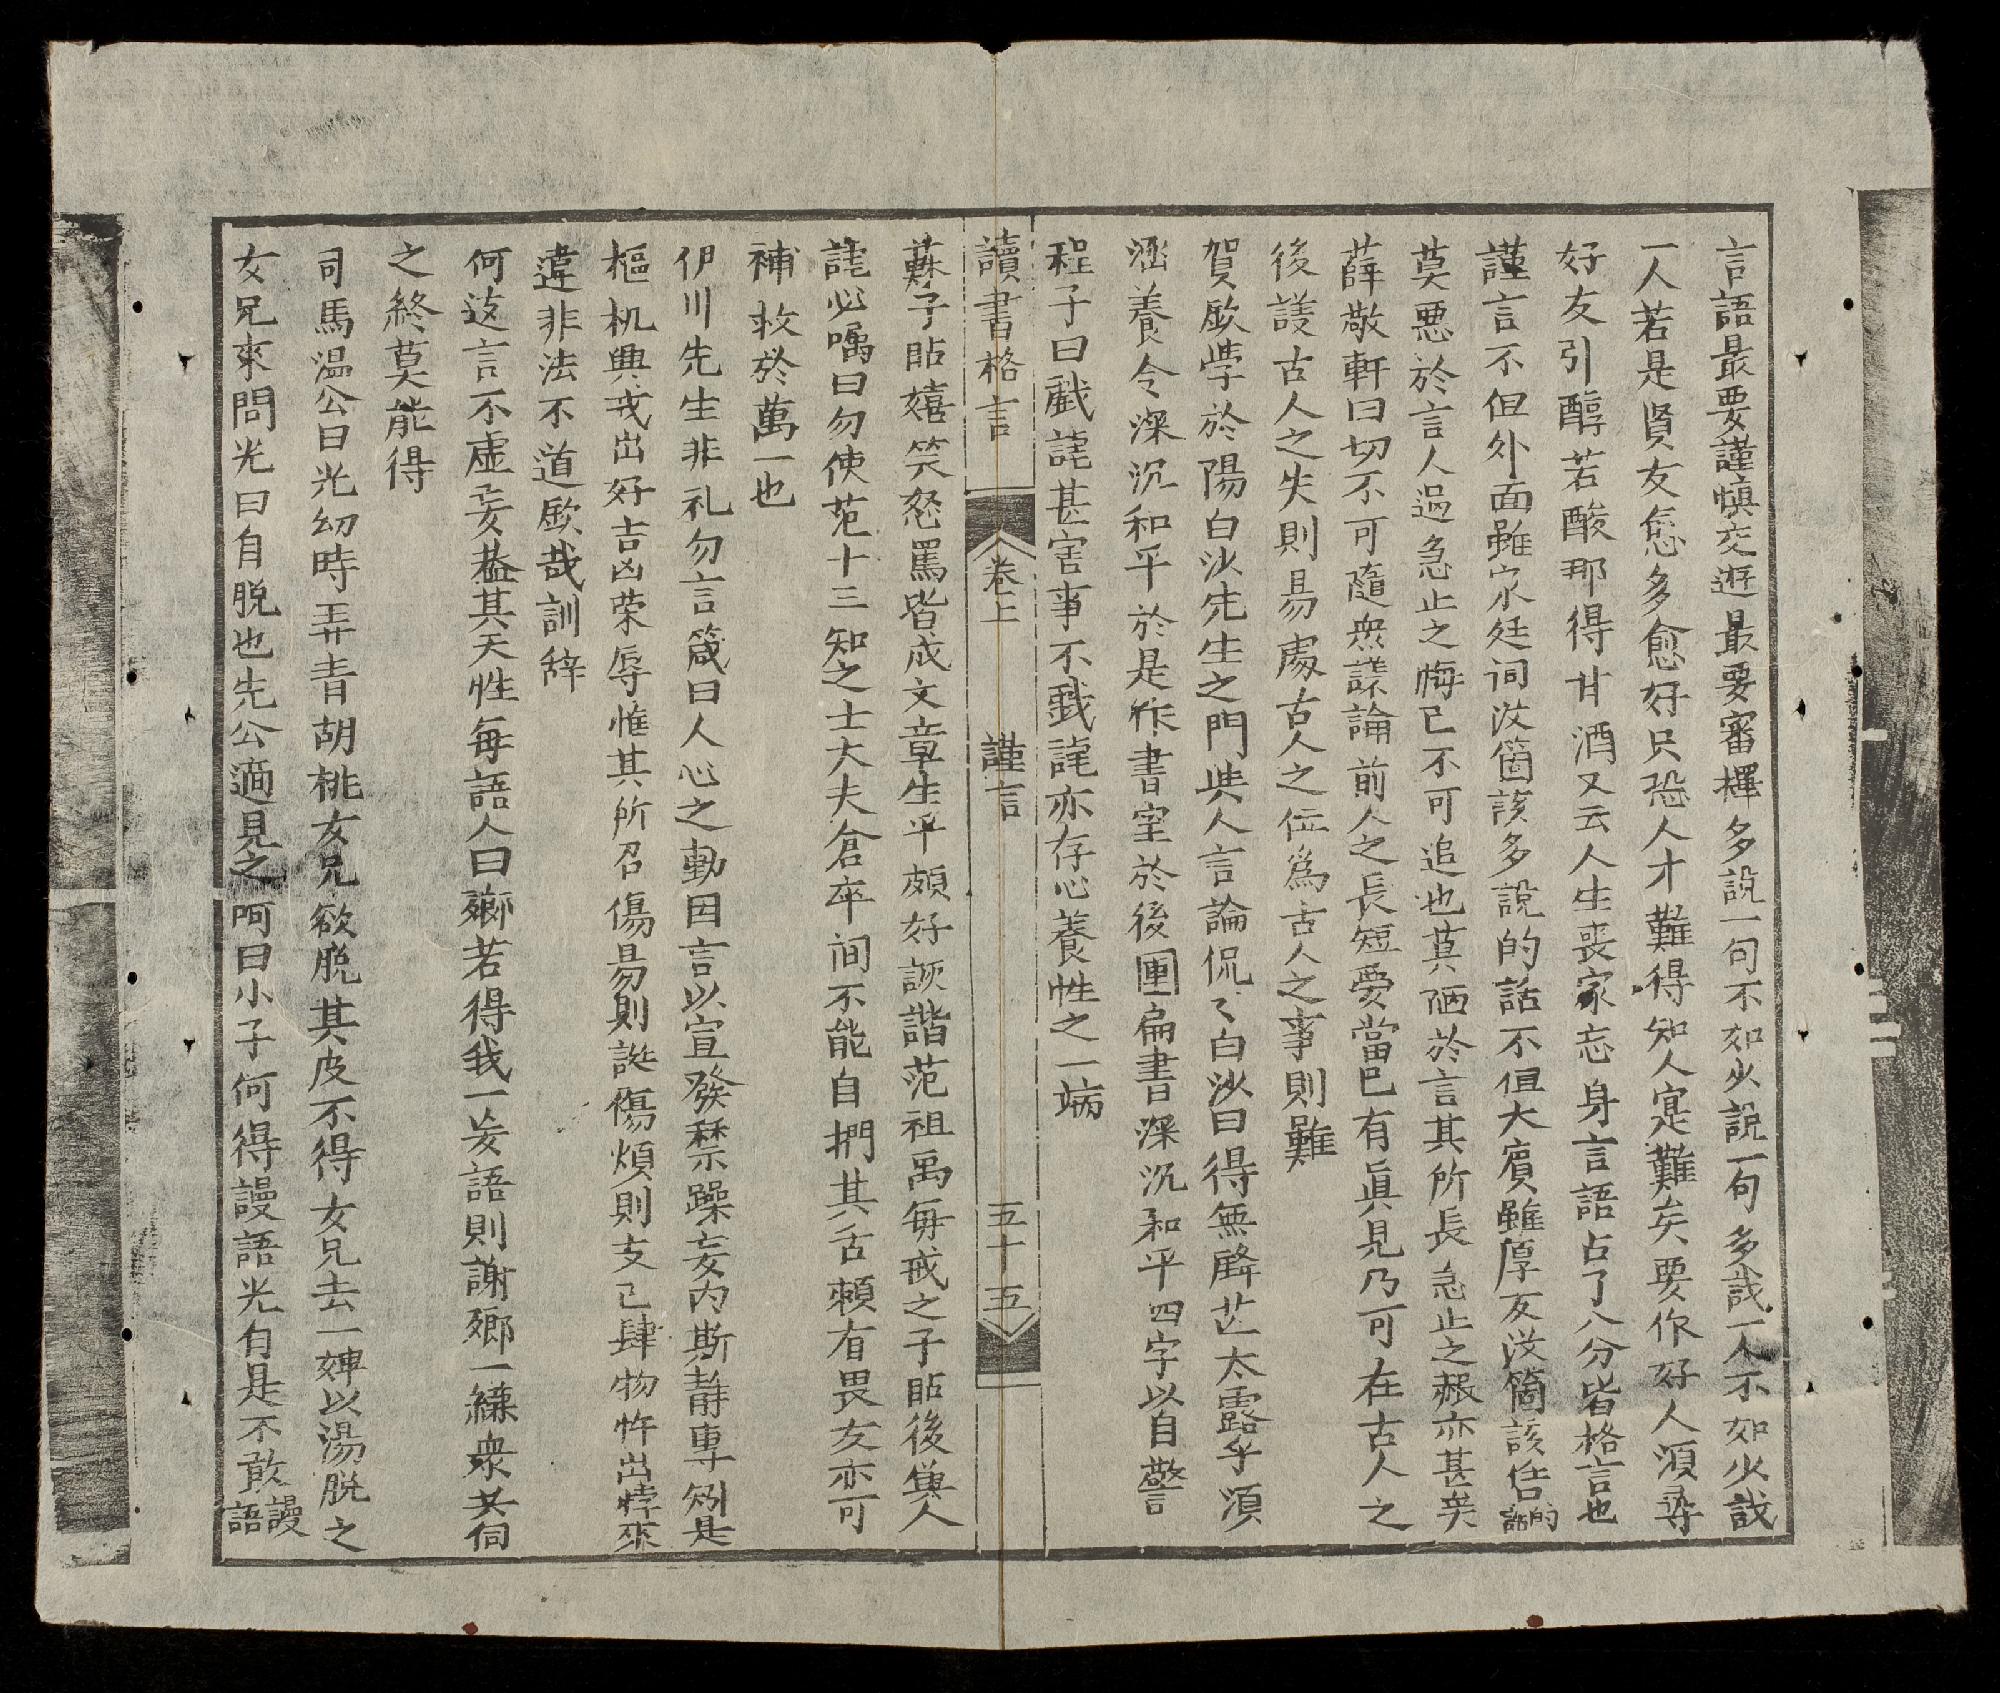 言語最要謹慎交遊最要審擇多說一句不如少說一句多識一人不如少識
一人若是賢友愈多愈好只恐人才難得知人寔難矣要作好人須尋
好友引醇若酸那得甘酒又云人生喪家忘身言語占了八分皆格言也
謹言不但外面雖家廷词沒箇該多說的話不但大賓雖厚友沒箇該任的話
莫惡於言人過急止之悔已不可追也莫陋於言其所長急止之赧亦甚矣
薛敬軒曰切不可隨衆議論前人之長短要當已有真見乃可在古人之
後議古人之失則昜處古人之位爲古人之事則難
賀欽學於陽白沙先生之門與人言論侃〻白沙曰得無鋒芒太露乎須
涵養令深沉和平於是作書室於後圃扁書深沉和平四字以自警
程子曰戱謔甚害事不戱謔亦存心養性之一端
讀書格言 卷上 謹言 五十五
蘇子貼嬉笑怒罵皆成文章生平頗好詼諧范祖禹每戒之子貼後與人
謔必囑曰勿使范十三知之士大夫倉卒间不能自捫其舌頼有畏友亦可
補救於萬一也
伊川先生非礼勿言箴曰人心之動因言以宣發禁躁妄内斯靜專矧是
樞机興戎出好吉凶荣辱惟其所召傷昜則誕傷煩則支己肆物忤出悖來
違非法不道欽哉訓辞
何这言不虛妄葢其天性每語人曰鄉若得我一妄語則謝鄉一縑衆共伺
之終莫能得
司馬温公曰光幼時弄青胡桃女兄欲脫其皮不得女兄去一婢以湯脫之
女兄來問光曰自脫也先公適見之呵曰小子何得謾語光自是不敢謾語